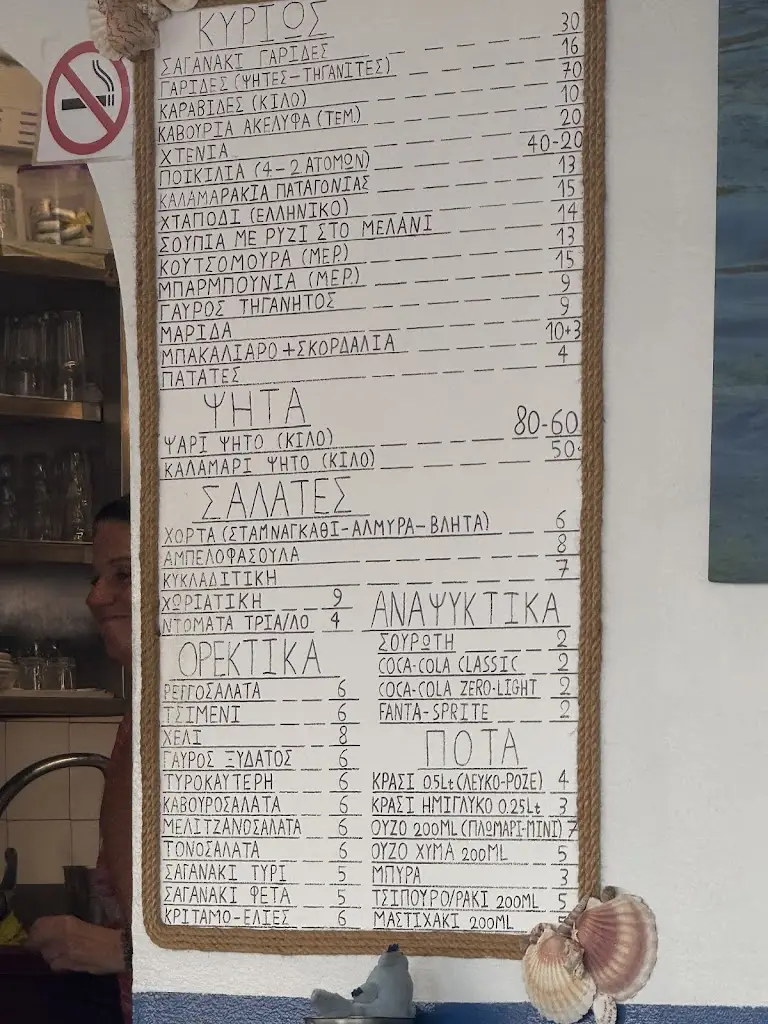 ΚΥΡΙΩΣ
ΣΑΓΑΝΑΚΙ ΓΑΡΙΔΕΣ 30
ΓΑΡΙΔΕΣ (ΨΗΤΕΣ-ΤΗΓΑΝΙΤΕΣ) 16
ΚΑΡΑΒΙΔΕΣ (ΚΙΛΟ) 70
ΚΑΒΟΥΡΙΑ ΑΚΕΛΥΦΑ (ΤΕΜ.) 10
ΧΤΕΝΙΑ 20
ΠΟΙΚΙΛΙΑ (4-2 ΑΤΟΜΩΝ) 40-20
ΚΑΛΑΜΑΡΑΚΙΑ ΠΑΤΑΓΟΝΙΑΣ 13
ΧΤΑΠΟΔΙ (ΕΛΛΗΝΙΚΟ) 15
ΣΟΥΠΙΑ ΜΕ ΡΥΖΙ ΣΤΟ ΜΕΛΑΝΙ 14
ΚΟΥΤΣΟΜΟΥΡΑ (ΜΕΡ.) 13
ΜΠΑΡΜΠΟΥΝΙΑ (ΜΕΡ.) 15
ΓΑΥΡΟΣ ΤΗΓΑΝΗΤΟΣ 9
ΜΑΡΙΔΑ 9
ΜΠΑΚΑΛΙΑΡΟ+ΣΚΟΡΔΑΛΙΑ 10+3
ΠΑΤΑΤΕΣ 4
ΨΗΤΑ
ΨΑΡΙ ΨΗΤΟ (ΚΙΛΟ) 80-60
ΚΑΛΑΜΑΡΙ ΨΗΤΟ (ΚΙΛΟ) 50
ΣΑΛΑΤΕΣ
ΧΟΡΤΑ (ΣΤΑΜΝΑΓΚΑΘΙ-ΑΛΜΥΡΑ-ΒΛΗΤΑ) 6
ΑΜΠΕΛΟΦΑΣΟΥΛΑ 8
ΚΥΚΛΑΔΙΤΙΚΗ 7
ΧΩΡΙΑΤΙΚΗ 9
ΝΤΟΜΑΤΑ ΤΡΙΑ/ΛΟ 4
ΟΡΕΚΤΙΚΑ
ΡΕΓΓΟΣΑΛΑΤΑ 6
ΤΣΙΜΕΝΙ 6
ΧΕΛΙ 8
ΓΑΥΡΟΣ ΞΥΔΑΤΟΣ 6
ΤΥΡΟΚΑΥΤΕΡΗ 6
ΚΑΒΟΥΡΟΣΑΛΑΤΑ 6
ΜΕΛΙΤΖΑΝΟΣΑΛΑΤΑ 6
ΤΟΝΟΣΑΛΑΤΑ 6
ΣΑΓΑΝΑΚΙ ΤΥΡΙ 5
ΣΑΓΑΝΑΚΙ ΦΕΤΑ 5
ΚΡΙΤΑΜΟ-ΕΛΙΕΣ 6
ΑΝΑΨΥΚΤΙΚΑ
ΣΟΥΡΩΤΗ 2
COCA-COLA CLASSIC 2
COCA-COLA ZERO-LIGHT 2
FANTA-SPRITE 2
ΠΟΤΑ
ΚΡΑΣΙ 0.5Lt (ΛΕΥΚΟ-ΡΟΖΕ) 4
ΚΡΑΣΙ ΗΜΙΓΛΥΚΟ 0.25Lt 3
ΟΥΖΟ 200ML (ΠΛΩΜΑΡΙ-ΜΙΝΙ) 7
ΟΥΖΟ ΧΥΜΑ 200ML 5
ΜΠΥΡΑ 3
ΤΣΙΠΟΥΡΟ/ΡΑΚΙ 200ML 5
ΜΑΣΤΙΧΑΚΙ 200ML